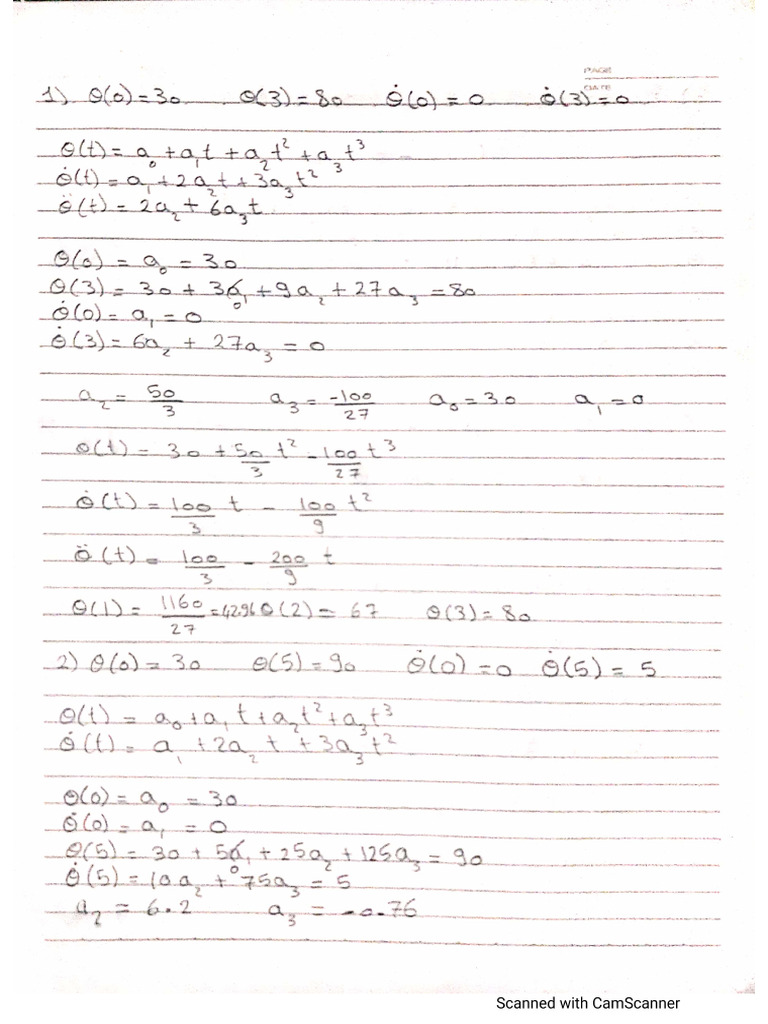 PAGE
DATE
1) θ(0)=30 θ(3)=80 θ̇(0)=0 θ̇(3)=0
θ(t)= a₀+a₁t+a₂t²+a₃t³
θ̇(t)=a₁+2a₂t+3a₃t²
θ̈(t)=2a₂+6a₃t
θ(0) = a₀ = 30
θ(3)= 30 + 3a₁ + 9a₂ + 27a₃ = 80
0
θ̇(0)= a₁ = 0
θ̇(3)= 6a₂ + 27a₃ = 0
a₂ = 50/3 a₃ = -100/27 a₀=30 a₁=0
θ(t)= 30 + 50/3 t² - 100/27 t³
θ̇(t)= 100/3 t - 100/9 t²
θ̈(t)= 100/3 - 200/9 t
θ(1)= 1160/27 =42.96 θ(2)= 67 θ(3)=80
2) θ(0)=30 θ(5)=90 θ̇(0)=0 θ̇(5)= 5
θ(t)= a₀+a₁t+a₂t²+a₃t³
θ̇(t)= a₁+2a₂t+3a₃t²
θ(0)=a₀ =30
θ̇(0)=a₁ =0
θ(5)=30+5a₁+25a₂+125a₃=90
0
θ̇(5)=10a₂+75a₃=5
a₂ = 6.2 a₃ = -0.76
Scanned with CamScanner